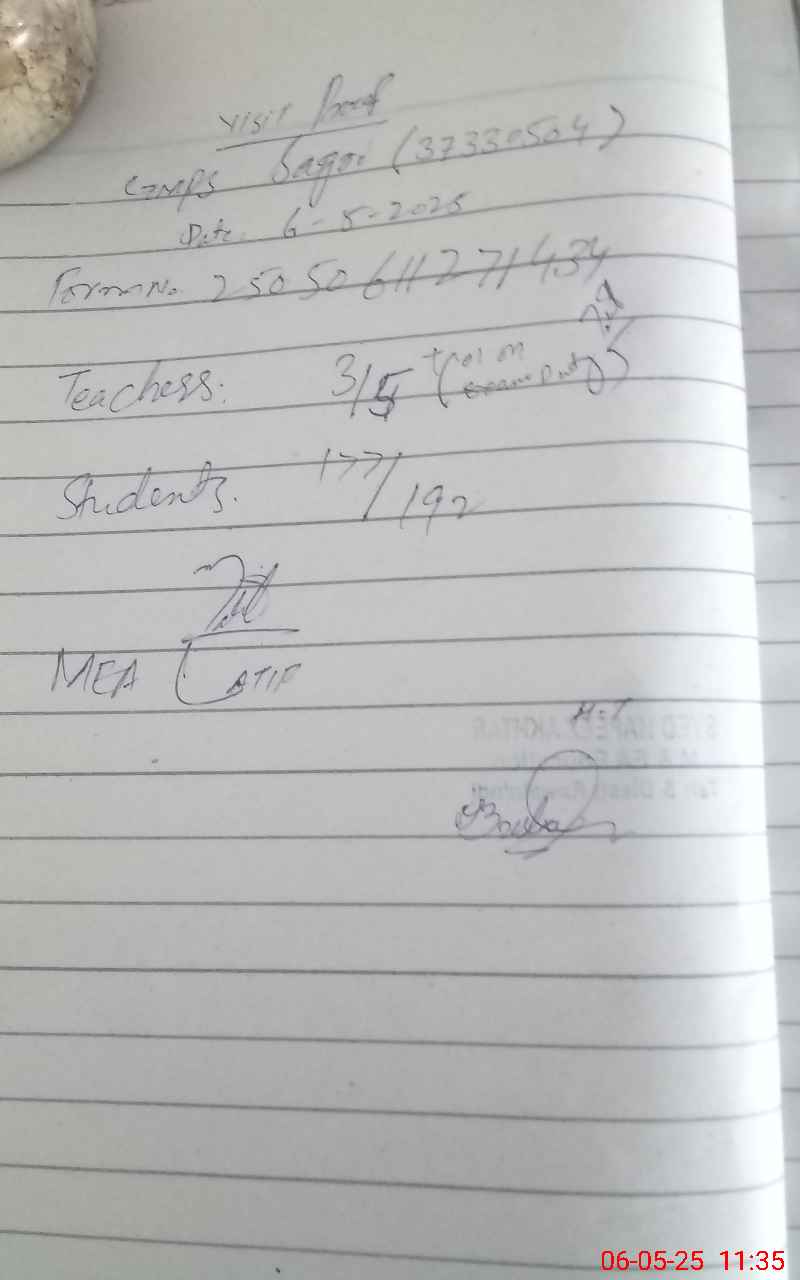 Visit Proof
GMPS Sagri (37330504)
Date. 6-5-2025
Form No. 25050611271434
Teachers: 3/5 (+ on exam Duty)
Students. 177/192
MEA LATIF
H.T
06-05-25 11:35